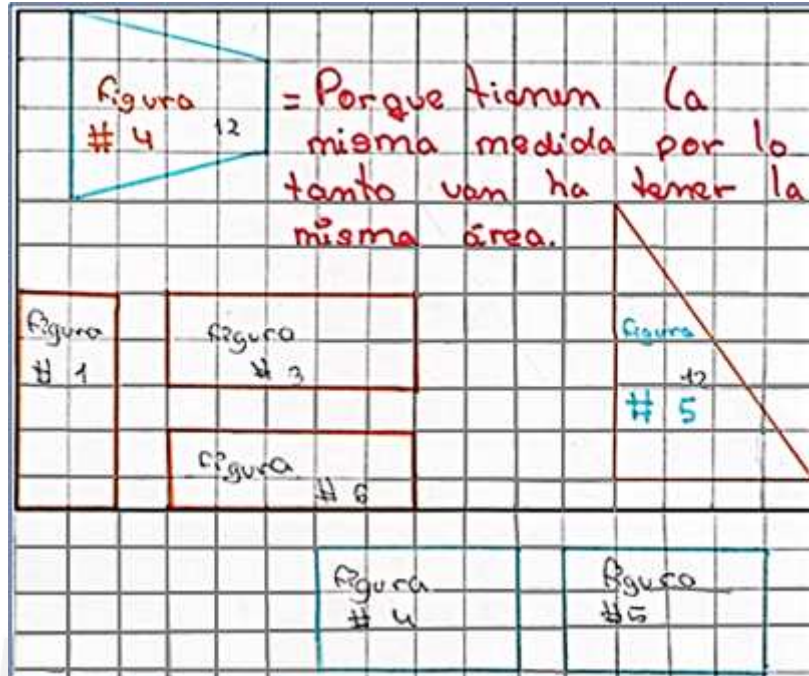 figura
# 4 12
= Porque tienen la
misma medida por lo
tanto van ha tener la
misma área.
figura
# 1
figura
# 3
figura
12
# 5
figura
# 6
figura
# 4
figura
#5